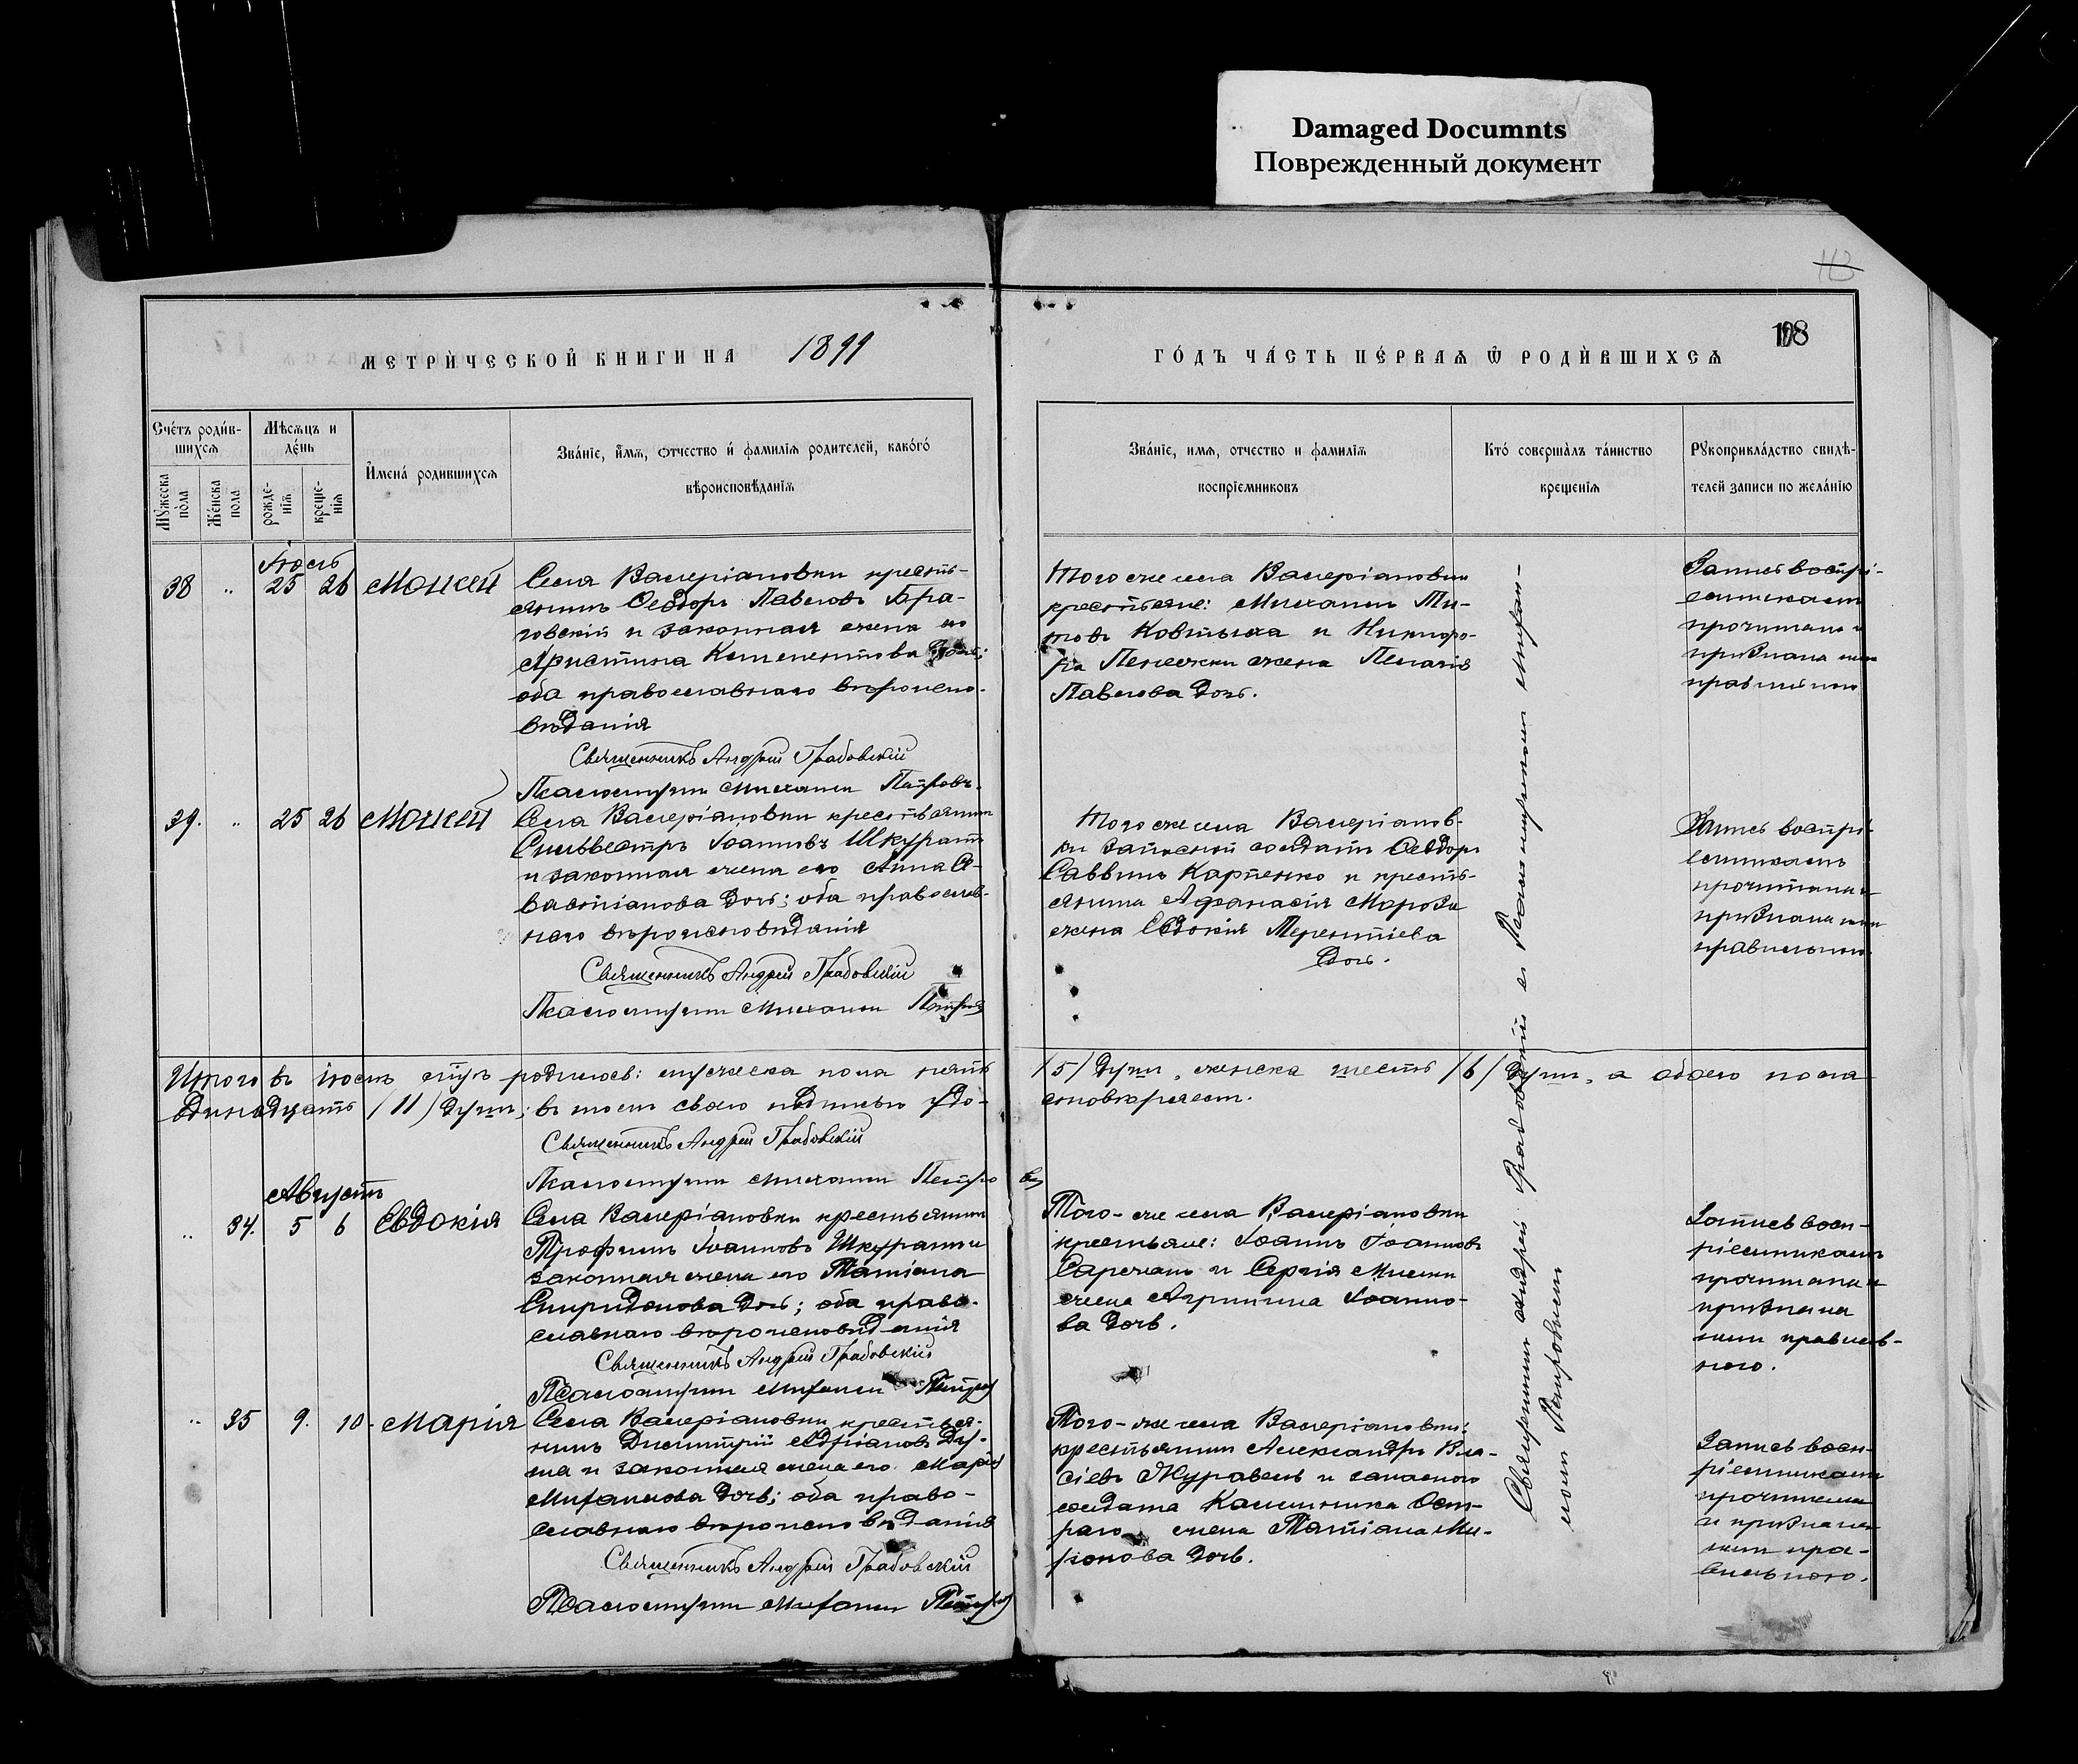 Damaged Documnts
Поврежденный документ
113
198
МЕТРИ́ЧЕСКОЙ КНИГИ НА 1899
ГО́ДЪ ЧА́СТЬ ПЕ́РВАѦ Ѡ РОДИ́ВШИХСѦ
Сче́тъ роди́в-
шихсѧ
Мѣсѧцъ и
де́нь
И҆мена́ родившихсѧ
Зва́нїе, и҆́мѧ, ѻтчество и҆ фамилїѧ родителей, како́го́
вѣроисповѣданїѧ
Мꙋ́жеска по́ла
Же́нска пола
рожде-
нїѧ
креще-
нїѧ
Зва́нїе, имѧ, отчество и фамилїѧ
воспрїемниковъ
Кто́ соверша́лъ та́инство
крещенїѧ
Рꙋкоприкла́дство свидѣ-
телей записи по жела́нїю
Іюль
38 „ 25 26 Мокей
Села Валеріановки кресть-
янинъ Ѳеодоръ Павловъ Бра-
говскій и законная жена его
Христина Климентова дочь;
оба православнаго вѣроиспо-
вѣданія
Священникъ Андрей Грабовскій
Псаломщикъ Михаилъ Петровъ
Того же села Валеріановки
крестьяне: Михаилъ Ти-
товъ Ковтыха и Никифо-
ра жена Пелагія
Павлова дочь.
Запись воспрі-
емникамъ
прочитана и
признана ими
правильною
39. „ 25 26 Мокей
Села Валеріановки крестьянинъ
Сильвестръ Іоанновъ Шкуратъ
и законная жена его Анна Се-
вастіанова дочь; оба православ-
наго вѣроисповѣданія
Священникъ Андрей Грабовскій
Псаломщикъ Михаилъ Петровъ
Того же села Валеріанов-
ки запасной солдатъ Ѳеодоръ
Саввинъ Карпенко и кресть-
янина Афанасія Мороза
жена Евдокія Терентіева
дочь.
Запись воспрі-
емникамъ
прочитана и
признана ими
правильною
Итого въ іюлѣ мѣс. родилось: мужеска пола пять /5/ душъ, женска шесть /6/ душъ, а обоего пола
одинадцать /11/ душъ; въ томъ своею подписью удо-
стовѣряемъ.
Священникъ Андрей Грабовскій
Псаломщикъ Михаилъ Петровъ
Августъ
„ 34. 5 6 Евдокія
Села Валеріановки крестьянинъ
Трофимъ Іоанновъ Шкуратъ и
законная жена его Татіана
Спиридонова дочь; оба право-
славнаго вѣроисповѣданія
Священникъ Андрей Грабовскій
Псаломщикъ Михаилъ Петровъ
Того-же села Валеріановки
крестьяне: Іоаннъ Іоанновъ
и Сергія
жена Агрипина Іоанно-
ва дочь.
Запись восп-
ріемникамъ
прочитана и
признана
ими правиль-
ною.
„ 35 9. 10. Марія
Села Валеріановки крестья-
нинъ Димитрій Адріановъ Ду-
ма и законная жена его Марія
Михаилова дочь; оба право-
славнаго вѣроисповѣданія
Священникъ Андрей Грабовскій
Псаломщикъ Михаилъ Петровъ
Того-же села Валеріановки:
крестьянинъ Александръ Вла-
сіевъ Журавель и запаснаго
солдата Калинника Ост-
раго жена Татіана Ми-
ронова дочь.
Запись восп-
ріемникамъ
прочитана
и признана
ими пра-
вильною.
Священникъ Андрей Грабовскій съ Псаломщикомъ Михаи-
ломъ Петровымъ